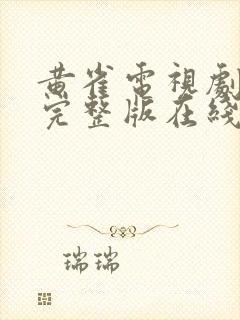 黄雀電視劇
完整版在綫
瑞瑞